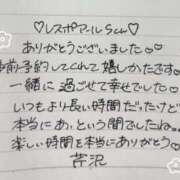 ♡レスポアールSさん♡
ありがとうございました♡♡
事前予約してくれて嬉しかたです
一緒に過ごせて幸せでした♡
いつもより長い時間だったけど
本当にあっという間でした
楽しい時間を本当にありがとう♡
芹沢